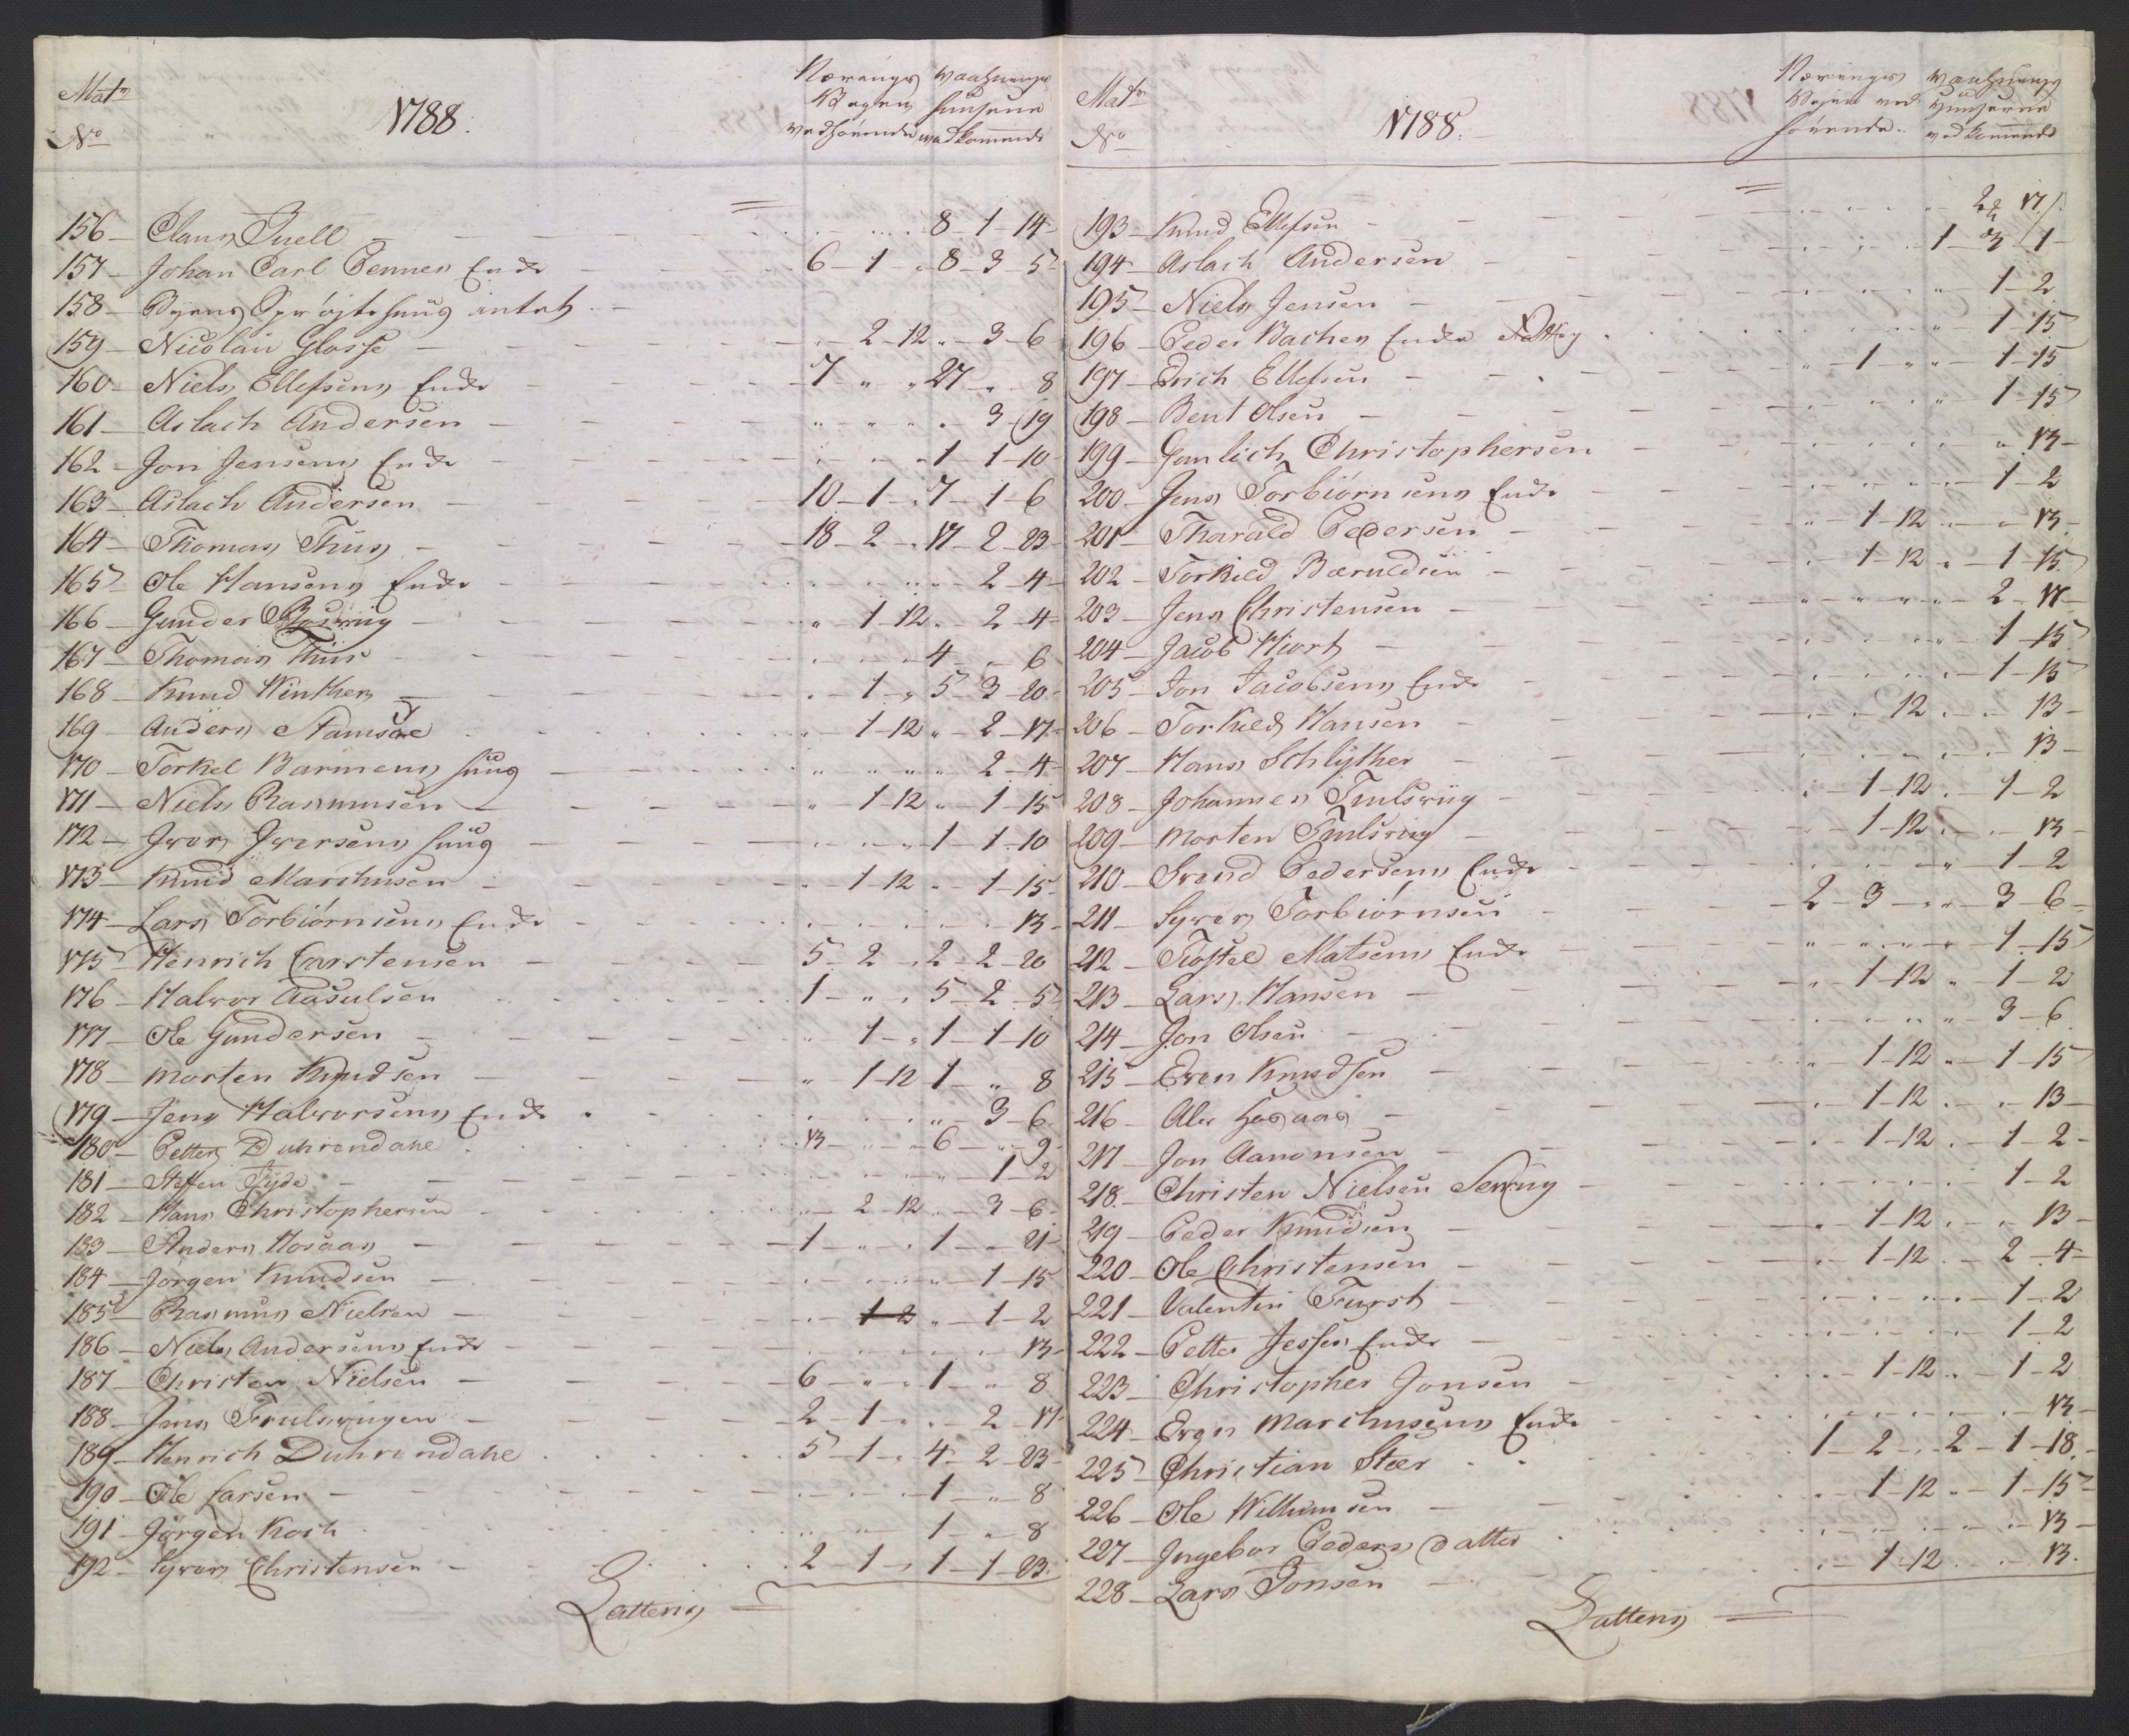 Matr
No
1788.
Nærings
Vegen
vedhørende
Vaahnings
Huusene
vedkommende
156 – Claus Buell – 8 – 1 – 14
157 – Johan Carl Penner Enke – 6 – 1 – 8 – 3 – 5
158 – Byens Sprøjtehuus intet
159 – Nicolai Glosse – 2 – 12 – 3 – 6
160 – Niels Ellefsens Enke – 7 " " 27 " 8
161 – Aslach Andersen – 3 – 19
162 – Jon Jensens Enke – 1 – 1 – 10
163 – Aslach Andersen – 10 – 1 – 7 – 1 – 6
164 – Thomas Thus – 18 – 2 – 17 – 2 – 23
165 – Ole Hansens Enke – 2 – 4
166 – Gunder – " 1 – 12 – 2 – 4
167 – Thomas Thus – 4 – 6
168 – Knud Winther – 1 – " 5 – 3 – 20
169 – Anders – 1 – 12 " – 2 – 17
170 – Torkel Barmens huus – 2 – 4
171 – Niels Rasmusen – " 1 – 12 " – 1 – 15
172 – Iver Iversens huus – 1 – 1 – 10
173 – Knud Marchusen – 1 – 12 – 1 – 15
174 – Lars Torbiørnsens Enke – 13
175 – Henrich Carstensen – 5 – 2 – 2 – 2 – 20
176 – Halvor Aasulsen – 1 – " – 5 – 2 – 5
177 – Ole Gundersen – 1 – 1 – 1 – 10
178 – Morten Knudsen – " 1 – 12 1 – " 8
179 – Jens Halvorsens Enke – 3 – 6
180 – Petter Duhrendahl – 13 – 6 – 9
181 – Steffen Tyde – 1 – 2
182 – Hans Christophersen – 2 – 12 – 3 – 6
183 – Anders Hosaas – 1 – 1 – 21
184 – Jørgen Knudsen – 1 – 15
185 – Rasmus Nielsen – 1 – 2 – 1 – 2
186 – Niels Andersens Enke – 13
187 – Christen Nielsen – 6 – " 1 – " 8
188 – Jens Frulsvigen – 2 – 1 – 2 – 17
189 – Henrich Duhrendahl – 5 – 1 – 4 – 2 – 23
190 – Ole Larsen – 1 – " 8
191 – Jørgen Koch – 1 – 8
192 – Syver Christensen – 2 – 1 – 1 – 1 – 23
Latteris
Matr
No
1788.
Nærings
Vejen ved
hørende
Vaahnings
Huuserne
vedkommende
193 – Knud Ellefsen – 2 17
194 – Aslach Andersen – 1 – 3 1
195 – Niels Jensen – 1 – 2
196 – Peder Bachers Enke – 1 – 15
197 – Erich Ellefsen – 1 – 1 – 15
198 – Bent Olsen – 1 – 15
199 – Christophersen – 13
200 – Jens Torbiørnsens Enke – 1 – 2
201 – Tharald Pedersen – 1 – 12 – 13
202 – Torkild Baruldsen – 1 – 12 – 1 – 15
203 – Jens Christensen – 2 – 17
204 – Jacob Hiort – 1 – 15
205 – Jon Jacobsens Enke – 1 – 15
206 – Torkild Hansen – 12 – 13
207 – Hans Schlyther – 13
208 – Johannes Frulsvig – 1 – 12 – 1 – 2
209 – Morten Frulsvig – 1 – 12 – 13
210 – Svend Pedersens Enke – 1 – 2
211 – Syver Torbiørnsen – 2 – 3 – 3 – 6
212 – Matsens Enke – 1 – 15
213 – Lars Hansen – 1 – 12 – 1 – 2
214 – Jon Olsen – 3 – 6
215 – Even Knudsen – 1 – 12 – 1 – 15
216 – Ale Hosaas – 1 – 12 – 13
217 – Jon Aanonsen – 1 – 12 – 1 – 2
218 – Christen Nielsen – 1 – 2
219 – Peder Knudsen – 1 – 12 – 13
220 – Ole Christensen – 1 – 12 – 2 – 4
221 – Valentin Furst – 1 – 2
222 – Petter Jessens Enke – 1 – 2
223 – Christopher Jonsen – 1 – 12 – 1 – 2
224 – Marchusens Enke – 13
225 – Christian Steer – 1 – 2 – 2 – 1 – 18
226 – Ole Willumsen – 1 – 12 – 1 – 15
227 – Ingebor Peders datter – 13
228 – Lars Tonsen – 1 – 12 – 13
Latteris